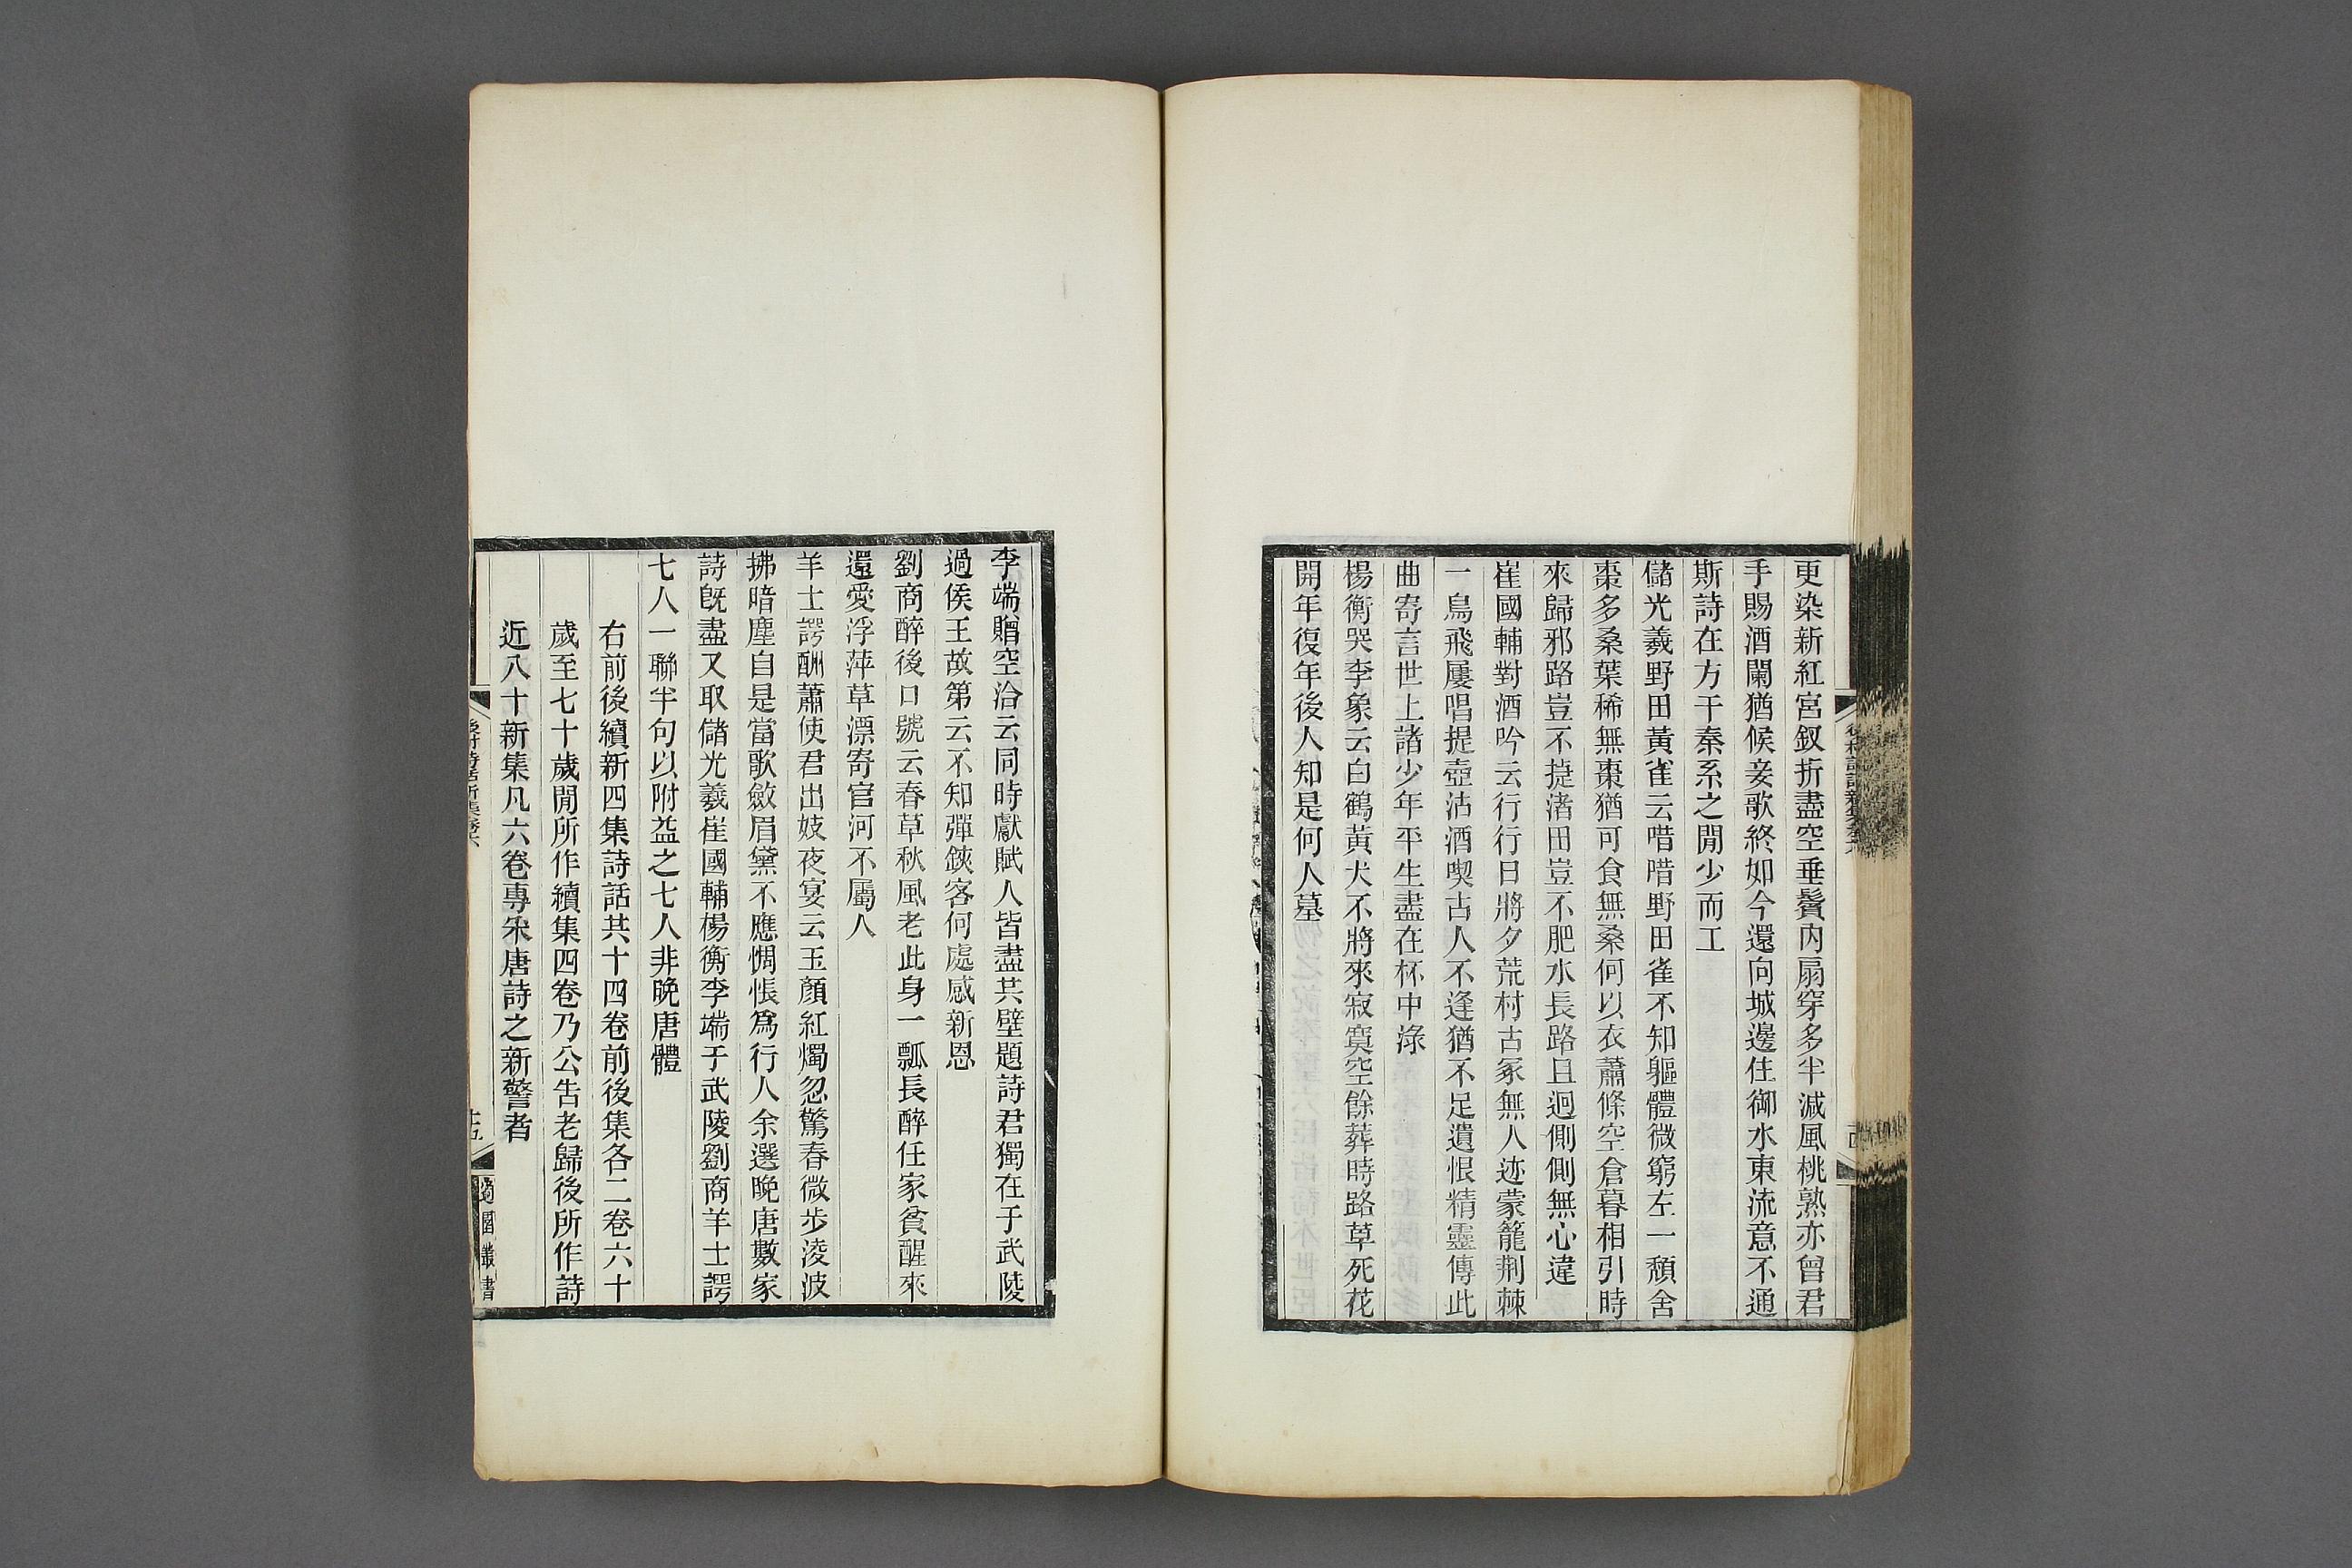 更染新紅宮釵折盡空垂鬢内扇穿多半減風桃熟亦曾君
手賜酒闌猶候妾歌終如今還向城邊住御水東流意不通
斯詩在方干秦系之閒少而工
儲光羲野田黃雀云喈喈野田雀不知軀體微窮左一頹舍
棗多桑葉稀無棗猶可食無桑何以衣蕭條空倉暮相引時
來歸邪路豈不捷渚田豈不肥水長路且迥側側無心違
崔國輔對酒吟云行行日將夕荒村古冢無人迹蒙籠荆棘
一鳥飛屢唱提壺沽酒喫古人不逢猶不足遺恨精靈傳此
曲寄言世上諸少年平生盡在杯中淥
楊衡哭李象云白鶴黃犬不將來寂寞空餘葬時路草死花
開年復年後人知是何人墓
李端贈空洽云同時獻賦人皆盡共壁題詩君獨在于武陵
過侯王故第云不知彈鋏客何處感新恩
劉商醉後口號云春草秋風老此身一瓢長醉任家貧醒來
還愛浮萍草漂寄官河不屬人
羊士諤酬蕭使君出妓夜宴云玉顏紅燭忽驚春微步淩波
拂暗塵自是當歌斂眉黛不應惆悵爲行人余選晚唐數家
詩旣盡又取儲光羲崔國輔楊衡李端于武陵劉商羊士諤
七人一聯半句以附益之七人非晚唐體
右前後續新四集詩話共十四卷前後集各二卷六十
歲至七十歲閒所作續集四卷乃公告老歸後所作詩
近八十新集凡六卷專宋唐詩之新警者
後村詩話新集卷六
十五
適園叢書